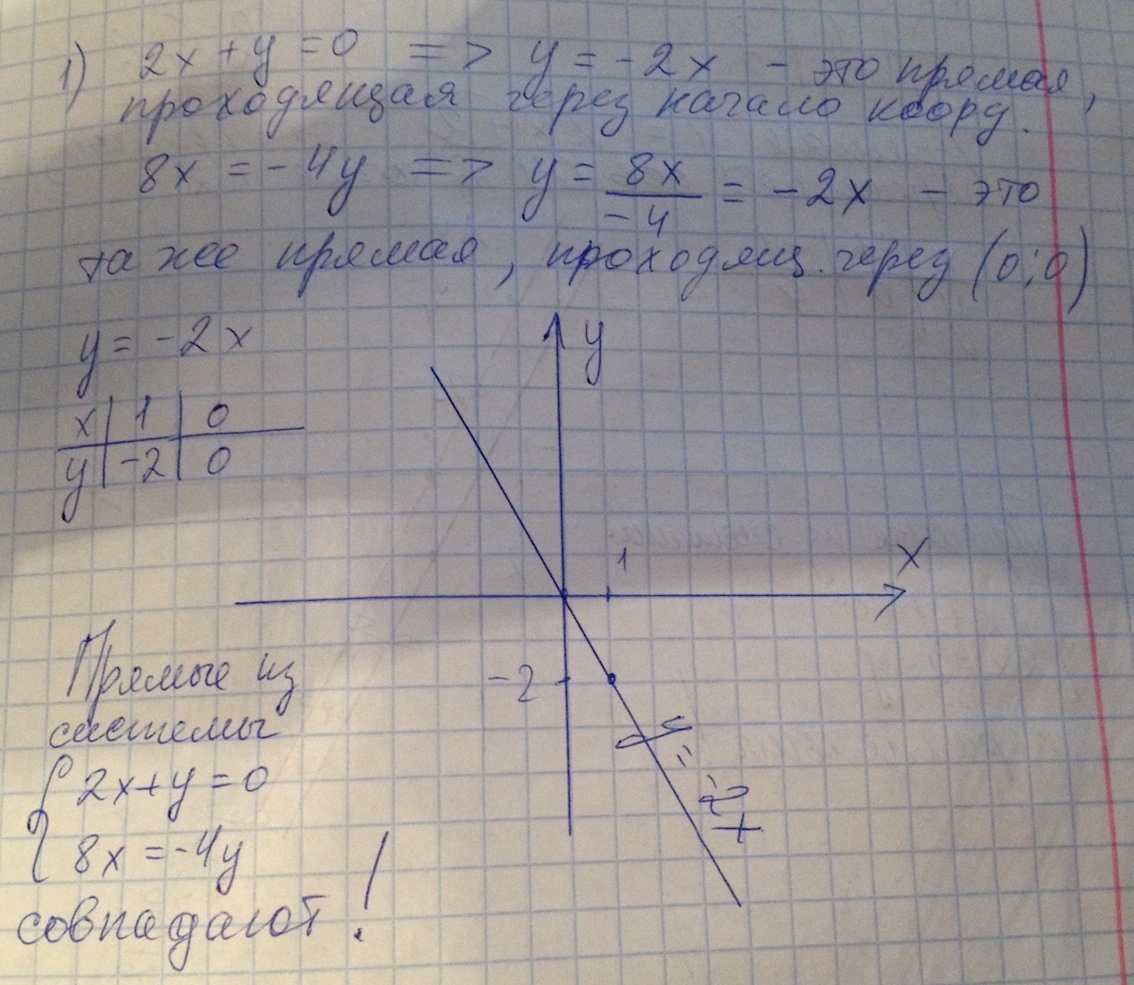 1) 2x + y = 0 => y = -2x - это прямая,
проходящая через начало коорд.
8x = -4y => y = 8x/-4 = -2x - это
та же прямая, проходящ. через (0;0)
y = -2x
x | 1 | 0
y | -2 | 0
y
x
1
-2
y = -2x
Прямые из
системы
{ 2x+y=0
8x=-4y
совпадают!